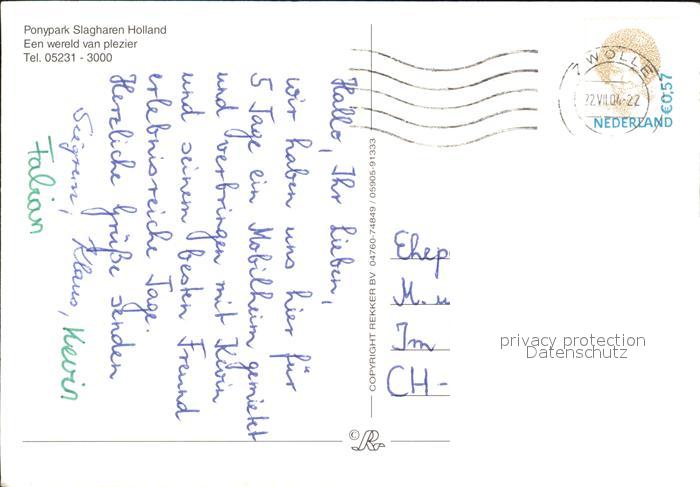 Ponypark Slagharen Holland
Een wereld van plezier
Tel. 05231 - 3000
Hallo, Ihr Lieben,
wir haben uns hier für
5 Tage ein Mobilheim gemietet
und verbringen mit Kevin
und seinem besten Freund
erlebnisreiche Tage.
Herzliche Grüße senden
Klaus, Kevin
Fabian
COPYRIGHT REKKER BV 04760-74849 / 05905-91333
ZWOLLE
22.VII.04-22
€0,57
NEDERLAND
Ehep
M. u
Im
CH-
privacy protection
Datenschutz